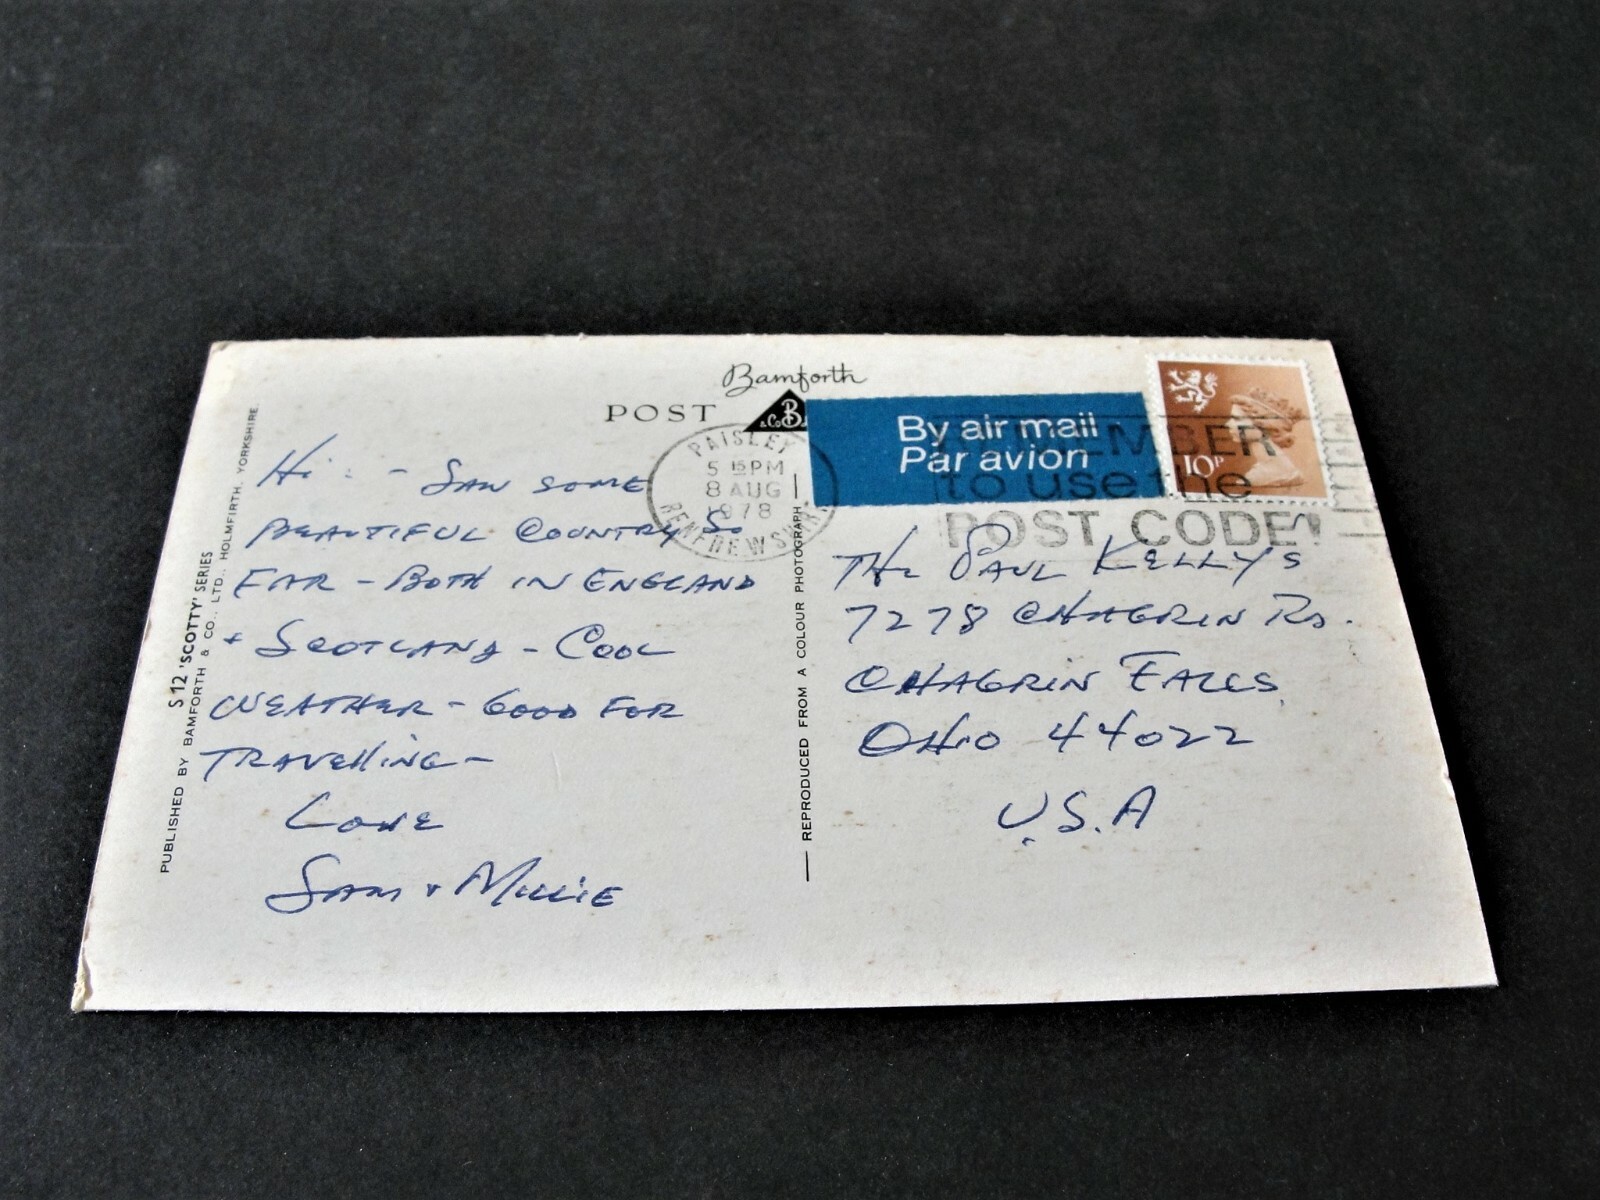 Bamforth
POST
& Co B
By air mail
Par avion
10P
PAISLEY
5 15 PM
8 AUG
1978
RENFREWSHIRE
REMEMBER
to use the
POST CODE!
Hi: - SAW SOME
BEAUTIFUL COUNTRY SO
FAR - BOTH IN ENGLAND
+ SCOTLAND - COOL
WEATHER - GOOD FOR
TRAVELLING -
LOVE
SAM + MILLIE
THE PAUL KELLYS
7278 CHAGRIN RD.
CHAGRIN FALLS
OHIO 44022
U.S.A
S 12 'SCOTTY' SERIES
PUBLISHED BY BAMFORTH & CO., LTD., HOLMFIRTH, YORKSHIRE.
REPRODUCED FROM A COLOUR PHOTOGRAPH